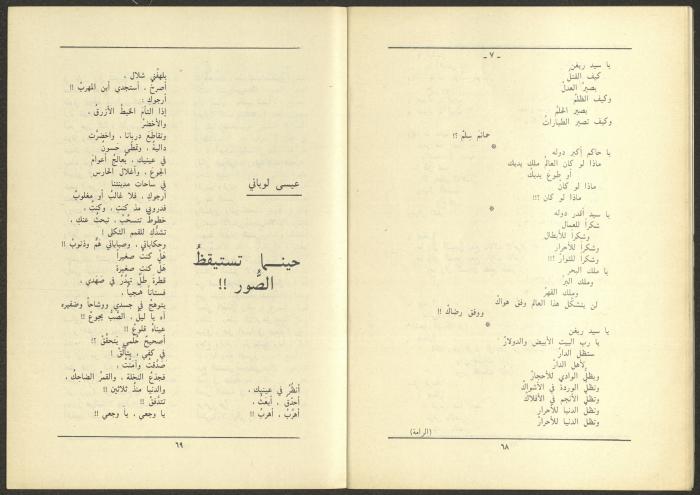 - ٧ -
يا سيد ريغن
كيف القتلُ
يصيرُ العدلْ
وكيف الظلمُ
يصير الحلمُ
وكيف تصير الطياراتُ
حمائمَ سِلمْ ؟!
*
يا حاكم أكبر دوله
ماذا لو كان العالمُ ملكَ يديك
أو طوعَ يديك
ماذا لو كان
ماذا لو كان !!!
*
يا سيد أقدر دوله
شكراً للعمال
وشكراً للأبطال
وشكراً للأحرار
وشكراً للثوار !!!
يا ملك البحر
وملك البرّ
وملك القهرْ
لن يتشكّل هذا العالم وفق هواك
ووفق رضاك !!
*
يا سيد ريغن
يا رب البيت الأبيض والدولارْ
ستظل الدارُ
لأهل الدارْ
ويظل الوادي للأحجارْ
وتظل الوردة في الأشواك
وتظل الأنجم في الأفلاك
وتظل الدنيا للأحرار
وتظل الدنيا للأحرارْ
(الرامة)
٦٨
عيسى لوباني
حينما تستيقظُ
الصُّور !!
أنظرُ في عينيك ،
أحدّق ، أبحثُ ،
أهربُ ، أهربُ !!
يلهقني شلال ،
أصرخُ ، أستجدي أين المهربُ !!
أرجوكِ :
إذا التأم الخيطُ الأزرقُ ،
والأخضرُ
وتقاطع دربانا ، واخضرّت
داليةٌ ، وتمطّى حَسونٌ
في عينيكِ ، يُعالجُ أعوام
الجوع ، وأغلال الحارس
في ساحات مدينتنا
أرجوكِ ، فلا غالبُ أو مغلوبُ
فدروبي مذ كنتِ ، وكنتُ ،
خطوطٌ تتسحّبُ ، تبحثُ عنكِ ،
تشدُّك للقمم الثكلى !
وحكاياتي ، وصباباتي همٌّ وذنوبُ !!
هل كنتِ صغيراً
هل كنتِ صغيرة
قطرة طلٍّ تهدُرُ في صَهدي ،
فستاناً همجياً ،
يتوهجُ في جسدي ووشاحاً وضفيره
آه يا ليلُ ، الصَّبُّ يجوعُ !!
عيناهُ قلوعُ !!
أصحيحٌ حُلمي يتحققُ ؟!
في كفي ، يتألّقُ !
صدّقتُ وآمنتُ ،
فجذعُ النخلة ، والقمرُ الضاحكُ ،
والدنيا منذُ ثلاثين !!
تتدفّقُ !!
يا وجعي ، يا وجعي !!
٦٩